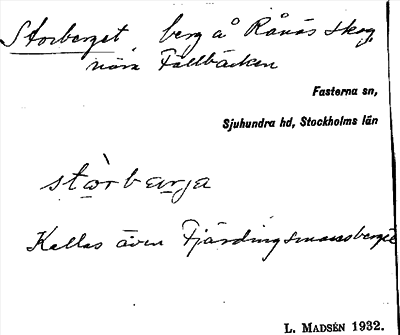 Storberget, berg å Rånäs skog,
nära Fallbäcken
Fasterna sn,
Sjuhundra hd, Stockholms län
stɷ̀rbærja
Kallas även Fjärdingsmansberget
L. MADSÉN 1932.